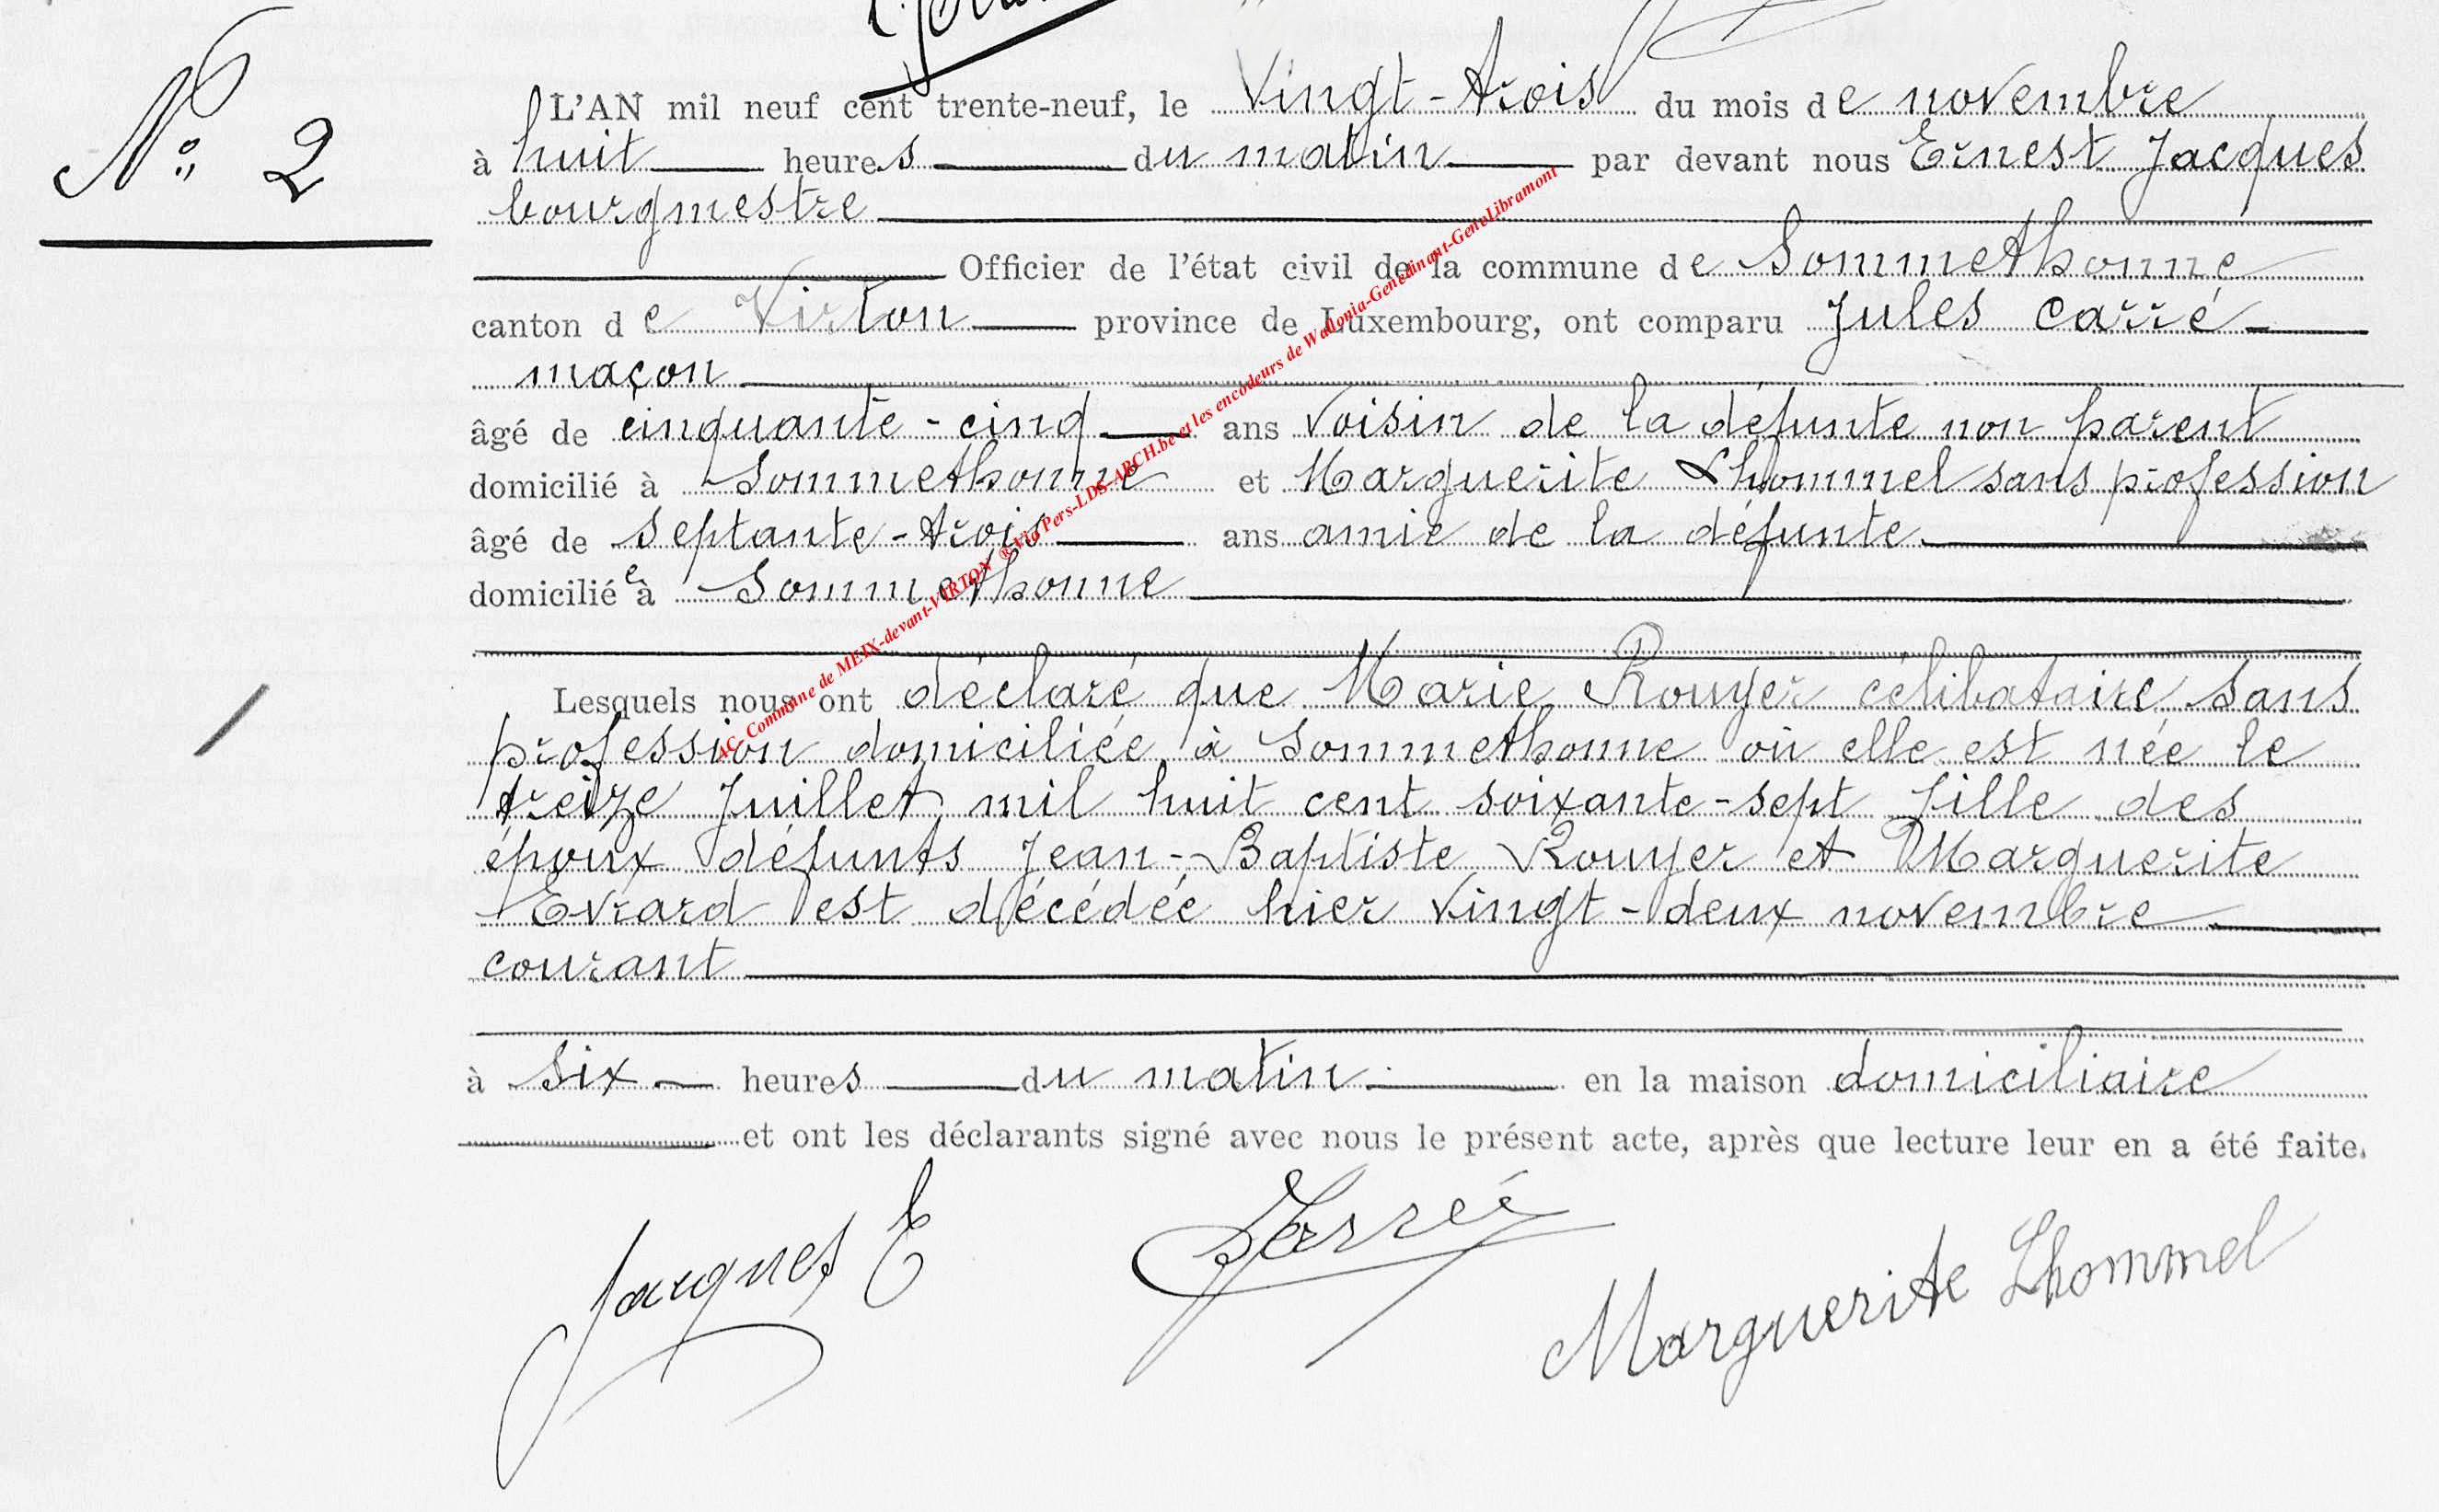 N° 2
L'AN mil neuf cent trente-neuf, le Vingt-trois du mois de novembre
à huit heures du matin par devant nous Ernest Jacques
bourgmestre
Officier de l'état civil de la commune de Sommethonne
canton de Virton province de Luxembourg, ont comparu Jules Carré
maçon
âgé de cinquante-cinq ans voisin de la défunte non parent
domicilié à Sommethonne et Marguerite Lhommel sans profession
âgé de septante-trois ans amie de la défunte
domiciliée à Sommethonne
Lesquels nous ont déclaré que Marie Rouyer célibataire sans
profession domiciliée à Sommethonne où elle est née le
treize Juillet mil huit cent soixante-sept fille des
époux défunts Jean-Baptiste Rouyer et Marguerite
Evrard est décédée hier vingt-deux novembre
courant
à six heures du matin en la maison domiciliaire
et ont les déclarants signé avec nous le présent acte, après que lecture leur en a été faite.
Jacques E
JCarré
Marguerite Lhommel
AC- Commune de MEIX-devant-VIRTON ® Via Pers-LDS-ARCH.be et les encodeurs de Wallonia-Genedinant-GeneLibramont